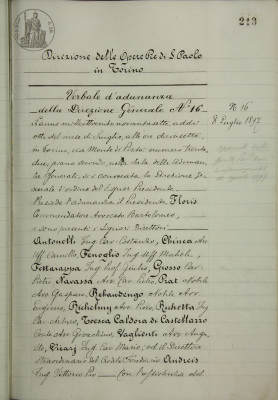 213
Direzione delle Opere Pie di S. Paolo
in Torino
Verbale d'adunanza
della Direzione Generale N° 16
N. 16
8 Luglio 1897
L'anno milleottocentonovantasette, addì
otto del mese di Luglio, alle ore diciassette,
in Torino, via Monte di Pietà, numero trenta
due, piano secondo, nella Sala delle Adunan
ze Generali, si è convocata la Direzione Ge
nerale d'ordine del Signor Presidente.
Presiede l'adunanza il Presidente Floris
Commendatore Avvocato Bartolomeo,
e sono presenti i Signori Direttori
Antonelli Ing. Cav. Costanzo, Chinea Av.
Uff. Camillo, Fenoglio Ing. Uff. Michele,
Ferrarappa Ing. Prof. Giulio, Grosso Cav.
Pietro, Navassa Avv. Cav. Pietro, Prat Nobile
Avv. Gaspare, Rebaudengo Nobile Avv.
Eugenio, Richelmy Avv. Pietro, Ruketta Ing.
Cav. Arturo, Toesca Caldora di Castellazzo
Conte Avv. Gioachino, Vagliente Avv. Augu
sto, Vicarj Ing. Cav. Mario, ed il Direttore
Straordinario del Credito Fondiario Andreis
Ing. Vittorio Pio — Con l'assistenza del